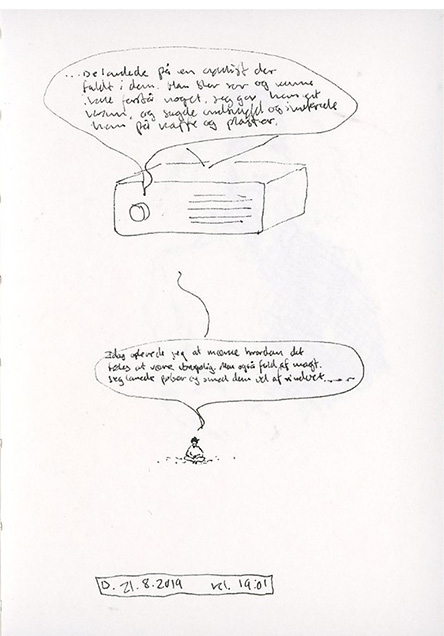 ...De landede på en cyklist der
faldt i dem. Han blev sur og kunne
ikke forstå noget. Jeg gav ham et
og sagde undskyld og inviterede
ham på kaffe og plaster.
Idag oplevede jeg at mærke hvordan det
føles at være Men også fuld af magt.
Jeg lavede og smed dem ud af vinduet......
D. 21.8.2019 kl. 19:01